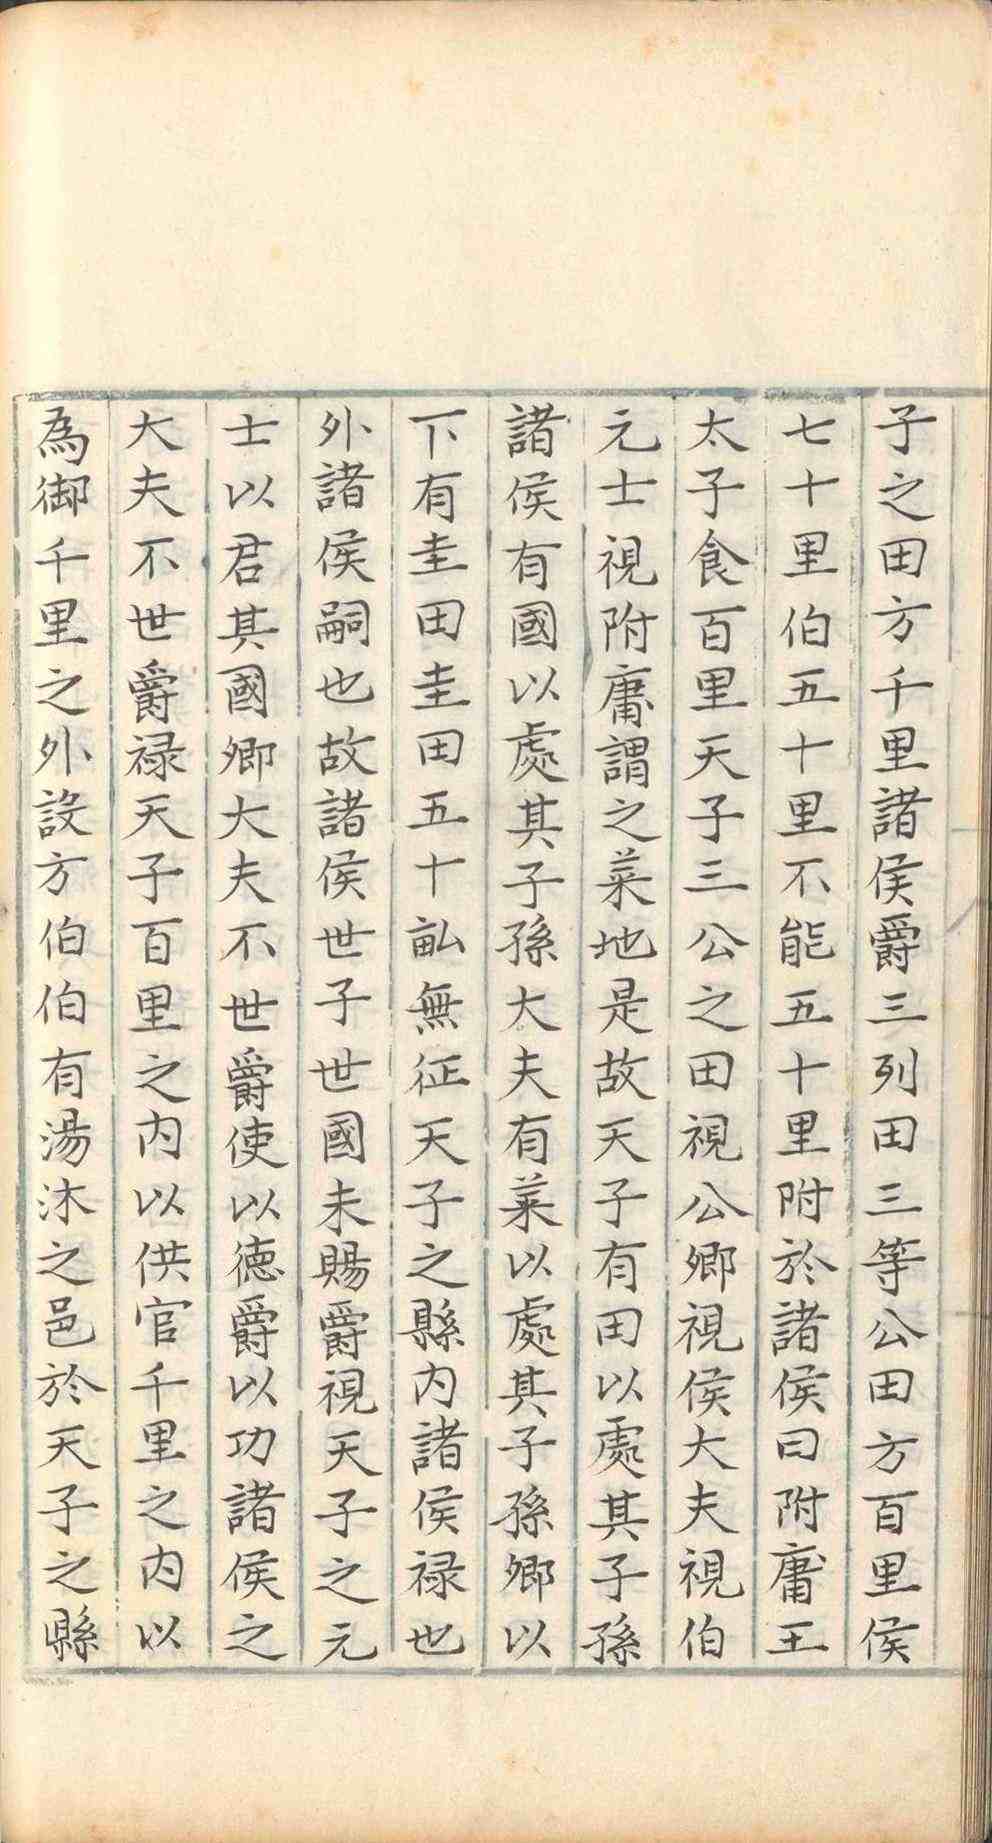 子之田方千里諸侯爵三列田三等公田方百里侯
七十里伯五十里不能五十里附於諸侯曰附庸王
太子食百里天子三公之田視公卿視侯大夫視伯
元士視附庸謂之菜地是故天子有田以處其子孫
諸侯有國以處其子孫大夫有菜以處其子孫卿以
下有圭田圭田五十畆無征天子之縣内諸侯禄也
外諸侯嗣也故諸侯世子世國未賜爵視天子之元
士以君其國卿大夫不世爵使以徳爵以功諸侯之
大夫不世爵禄天子百里之内以供官千里之内以
為御千里之外設方伯伯有湯沐之邑於天子之縣